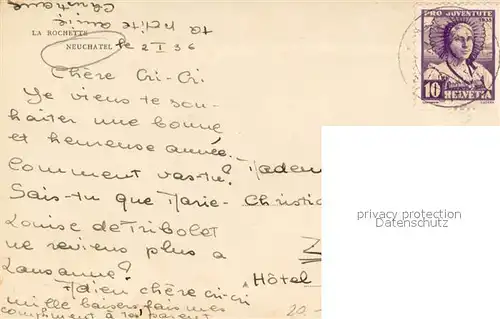 ta petite amie
Christiane
LA ROCHETTE
NEUCHATEL
le 2 I 36
Chère Cri-Cri.
Je viens te sou-
haiter une bonne
et heureuse année.
Comment vas-tu?
Sais-tu que Marie-
Louise de Tribolet
ne reviens plus a
Lausanne?
Adien chère cri-cri
mille baisers fais mes
compliment à tes parent
PRO JUVENTUTE
1935
10 HELVETIA
Madem
Christia
Hôtel
20.-
privacy protection
Datenschutz